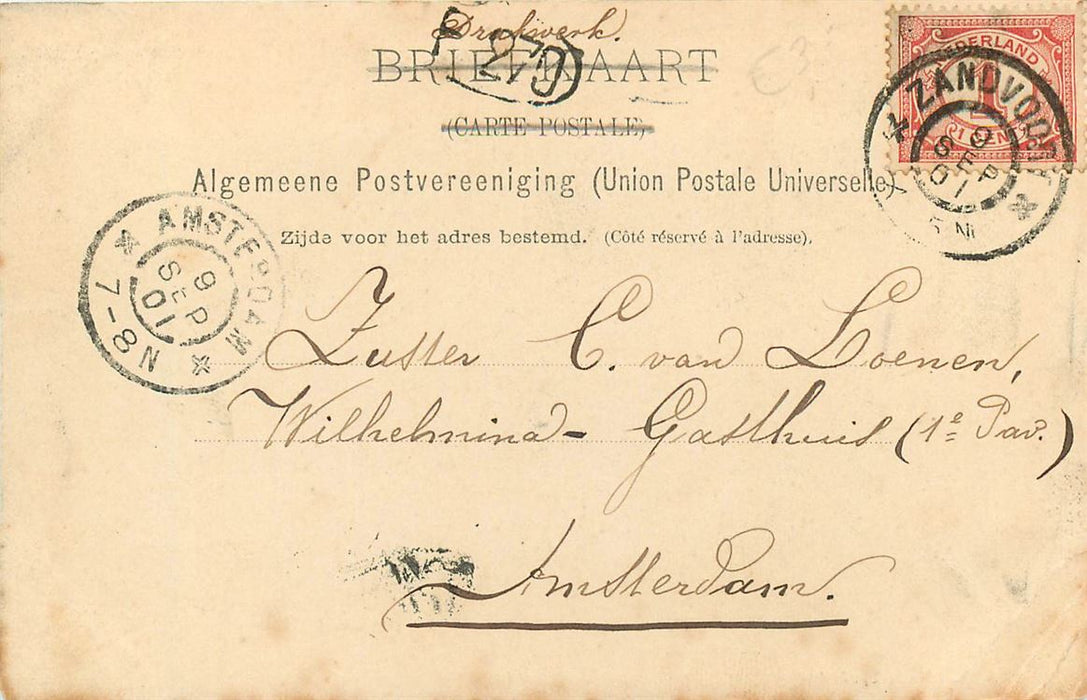 Drukwerk.
BRIEFKAART
(CARTE POSTALE)
Algemeene Postvereeniging (Union Postale Universelle)
Zijde voor het adres bestemd. (Côté réservé à l'adresse).
NEDERLAND
1
1 CENT
ZANDVOORT
9
SEP
01
AMSTERDAM
9
SEP
01
7-8 N
Zuster C. van Loenen,
Wilhelmina-Gasthuis (1e Pav.)
Amsterdam.